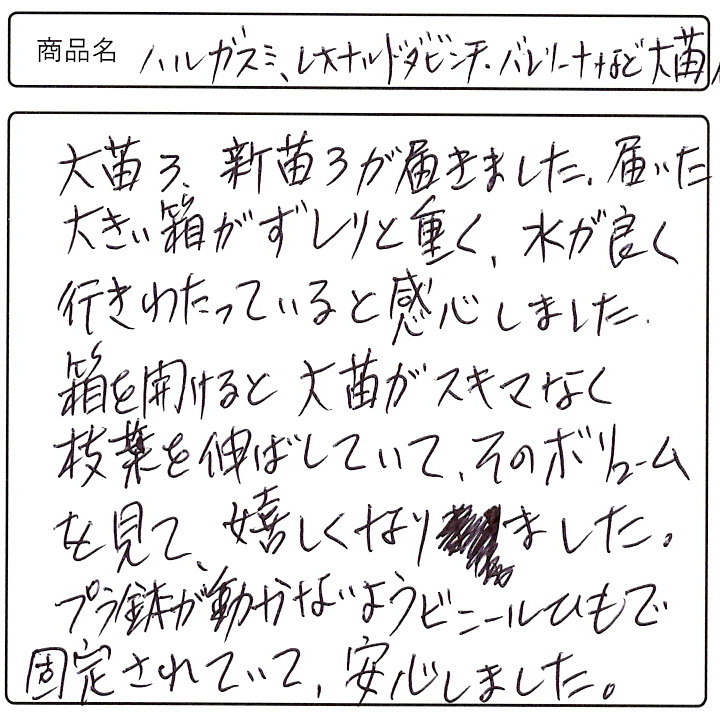 商品名 ハルガスミ、レオナルドダビンチ、バレリーナなど大苗
大苗3、新苗3が届きました。届いた
大きい箱がずしりと重く、水が良く
行きわたっていると感心しました。
箱を開けると大苗がスキマなく
枝葉を伸ばしていて、そのボリューム
を見て、嬉しくなりました。
プラ鉢が動かないようビニールひもで
固定されていて、安心しました。